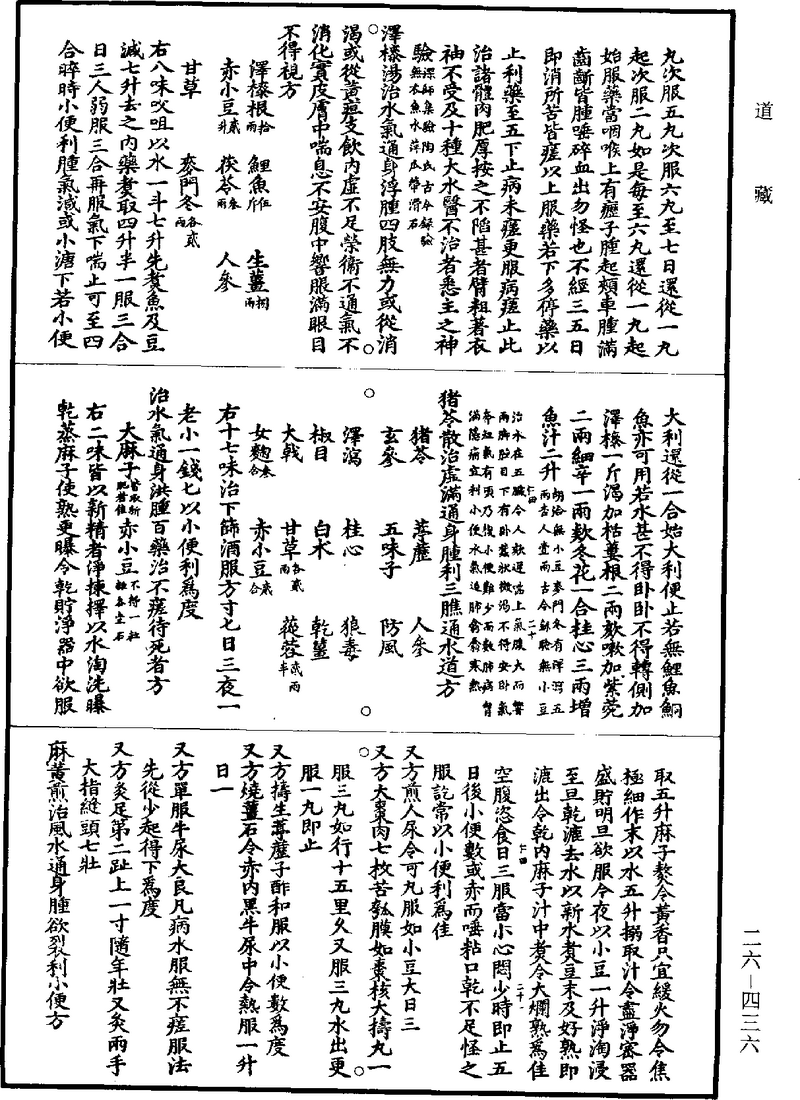 道藏
九次服五九次服六九至七日還從一九
起次服二九如是每至六九還從一九起
始服藥當咽喉上有癧子腫起頰車腫滿
齒齗皆腫唾碎血出勿怪也不經三五日
即消所苦皆瘥以上服藥若下多停藥以
止利藥至五下止病未瘥更服病瘥止此
治諸體肉肥厚按之不陷甚者臂粗著衣
袖不受及十種大水醫不治者悉主之神
驗深師集驗陶氏古今錄驗無木魚水萍瓜蒂滑石
澤漆湯治水氣通身浮腫四肢無力或從消
渴或從黃疸支飲內虛不足榮衛不通氣不
消化實皮膚中喘息不安腹中響脹滿眼目
不得視方
澤漆根拾兩 鯉魚伍斤 生薑捌兩
赤小豆貳升 茯苓叁兩 人參
甘草 麥門冬各貳兩
右八味㕮咀以水一斗七升先煮魚及豆
減七升去之內藥煮取四升半一服三合
日三人弱服三合再服氣下喘止可至四
合晬時小便利腫氣減或小溏下若小便
大利還從一合始大利便止若無鯉魚鮦
魚亦可用若水甚不得卧卧不得轉側加
澤漆一斤渴加栝蔞根二兩欬嗽加紫菀
二兩細辛一兩欵冬花一合桂心三兩增
魚汁二升
猪苓散治虛滿通身腫利三膲通水道方
猪苓 葶藶 人參
玄參 五味子 防風
澤瀉 桂心 狼毒
椒目 白术 乾薑
大戟 甘草各貳兩 蓯蓉貳兩半
女麴叁合 赤小豆貳合
右十七味治下篩酒服方寸匕日三夜一
老小一錢匕以小便利爲度
治水氣通身洪腫百藥治不瘥待死者方
大麻子皆取新肥者佳 赤小豆不得一粒雜各壹石
右二味皆以新精者淨揀擇以水淘洗曝
乾蒸麻子使熟更曝令乾貯淨器中欲服
取五升麻子熬令黃香只宜緩火勿令焦
極細作末以水五升搦取汁令盡淨密器
盛貯明旦欲服今夜以小豆一升淨淘浸
至旦乾漉去水以新水煮豆未及好熟即
漉出令乾內麻子汁中煮令大爛熟爲佳
空腹恣食日三服當小心悶少時即止五
日後小便數或赤而唾粘口乾不足怪之
服訖常以小便利爲佳
又方煎人尿令可丸服如小豆大日三
又方大棗肉七枚苦瓠膜如棗核大擣丸一
服三丸如行十五里久又服三丸水出更
服一丸即止
又方擣生葶藶子酢和服以小便數爲度
又方燒薑石令赤內黑牛尿中令熱服一升
日一
又方單服牛尿大良凡病水服無不瘥服法
先從少起得下爲度
又方灸足第二趾上一寸隨年壯又灸兩手
大指縫頭七壯
麻黃煎治風水通身腫欲裂利小便方
二六—四三六